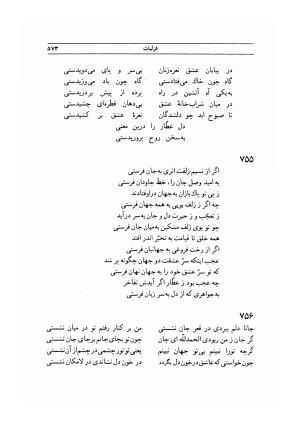 غزلیات ۵۷۳
در بیابان عشق نعره‌زنان بی‌سر و پای می‌دویدستی
گاه چون خاک می‌فتادستی گاه چون باد می‌وزیدستی
به یکی آه آتشین در راه پرده از پیش بردریدستی
در میان شراب‌خانهٔ عشق بی‌دهان قطره‌ای چشیدستی
تا صبوح ابد چو دلشدگان نعرهٔ عشق بر کشیدستی
دل عطّار را درین معنی
به‌سخن روح پروریدستی
۷۵۵
اگر از نسیم زلفت اثری به‌جان فرستی
به امید وصل جان را، خط جاودان فرستی
ز پی تو پاک‌بازان به‌جهان دراوفتادند
چه اگر ز زلف بویی به همه جهان فرستی
ز تعجّب و ز حیرت دل و جان به‌سر درآید
چو تو بوی زلف مشکین به‌میان جان فرستی
همه خلق تا قیامت به تحیّر اندر افتد
اگر از رخت فروغی به جهانیان فرستی
عجب اینکه سرّ عشقت دو جهان چگونه پر شد
که تو سرّ عشق خود را به جهان نهان فرستی
چه عجب بود ز عطّار اگر آیدش تفاخر
به‌جواهری که از دل به‌سر زبان فرستی
۷۵۶
جانا دلم ببردی در قعر جان نشستی من بر کنار رفتم تو در میان نشستی
گر جان ز من ربودی الحمدلله ای جان چون تو بجای جانم بر جای جان نشستی
گرچه ترا نبینم بی‌تو جهان نبینم یعنی تو نور چشمی در چشم از آن نشستی
چون خواستی که عاشق در خون دل بگردد در خون دل نشاندی در لامکان نشستی